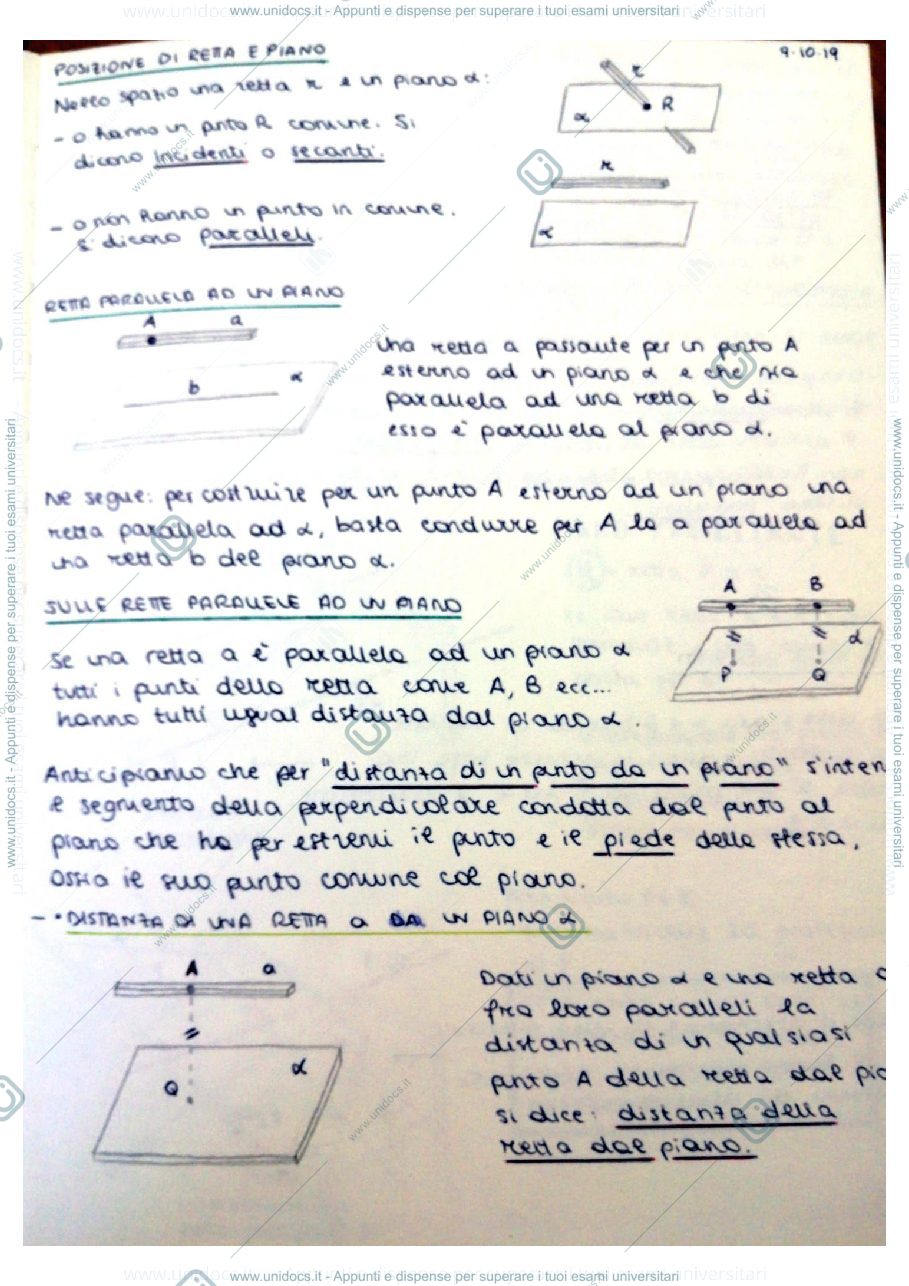 www.unidocs.it - Appunti e dispense per superare i tuoi esami universitari
9.10.19
POSIZIONE DI RETTA E PIANO
Nello spazio una retta r e un piano α:
- o hanno un punto R comune. Si
dicono incidenti o secanti.
r
R
α
- o non hanno un punto in comune.
si dicono paralleli.
r
α
RETTA PARALLELA AD UN PIANO
A a
b α
Una retta a passante per un punto A
esterno ad un piano α e che sia
parallela ad una retta b di
esso è parallela al piano α.
Ne segue: per costruire per un punto A esterno ad un piano una
retta parallela ad α, basta condurre per A la a parallela ad
una retta b del piano α.
SULLE RETTE PARALLELE AD UN PIANO
A B
α
P Q
Se una retta a è parallela ad un piano α
tutti i punti della retta come A, B ecc...
hanno tutti ugual distanza dal piano α.
Anticipiamo che per "distanza di un punto da un piano" s'inten
il segmento della perpendicolare condotta dal punto al
piano che ha per estremi il punto e il piede della stessa,
ossia il suo punto comune col piano.
- • DISTANZA DI UNA RETTA a DA UN PIANO α
A a
α
Q
Dati un piano α e una retta a
fra loro paralleli la
distanza di un qualsiasi
punto A della retta dal pia
si dice: distanza della
retta dal piano.
www.unidocs.it - Appunti e dispense per superare i tuoi esami universitari